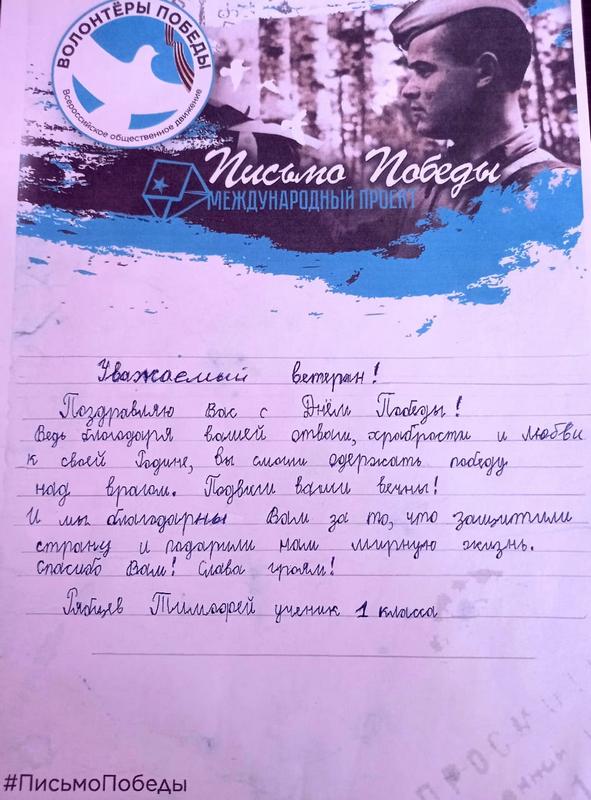 ВОЛОНТЁРЫ ПОБЕДЫ
Всероссийское общественное движение
Письмо Победы
МЕЖДУНАРОДНЫЙ ПРОЕКТ
Уважаемый ветеран!
Поздравляю Вас с Днём Победы!
Ведь благодаря вашей отваги, храбрости и любви
к своей Родине, вы смогли одержать победу
над врагом. Подвиги ваши вечны!
И мы благодарны Вам за то, что защитили
страну и подарили нам мирную жизнь.
Спасибо Вам! Слава героям!
Рябцев Тимофей ученик 1 класса
#ПисьмоПобеды